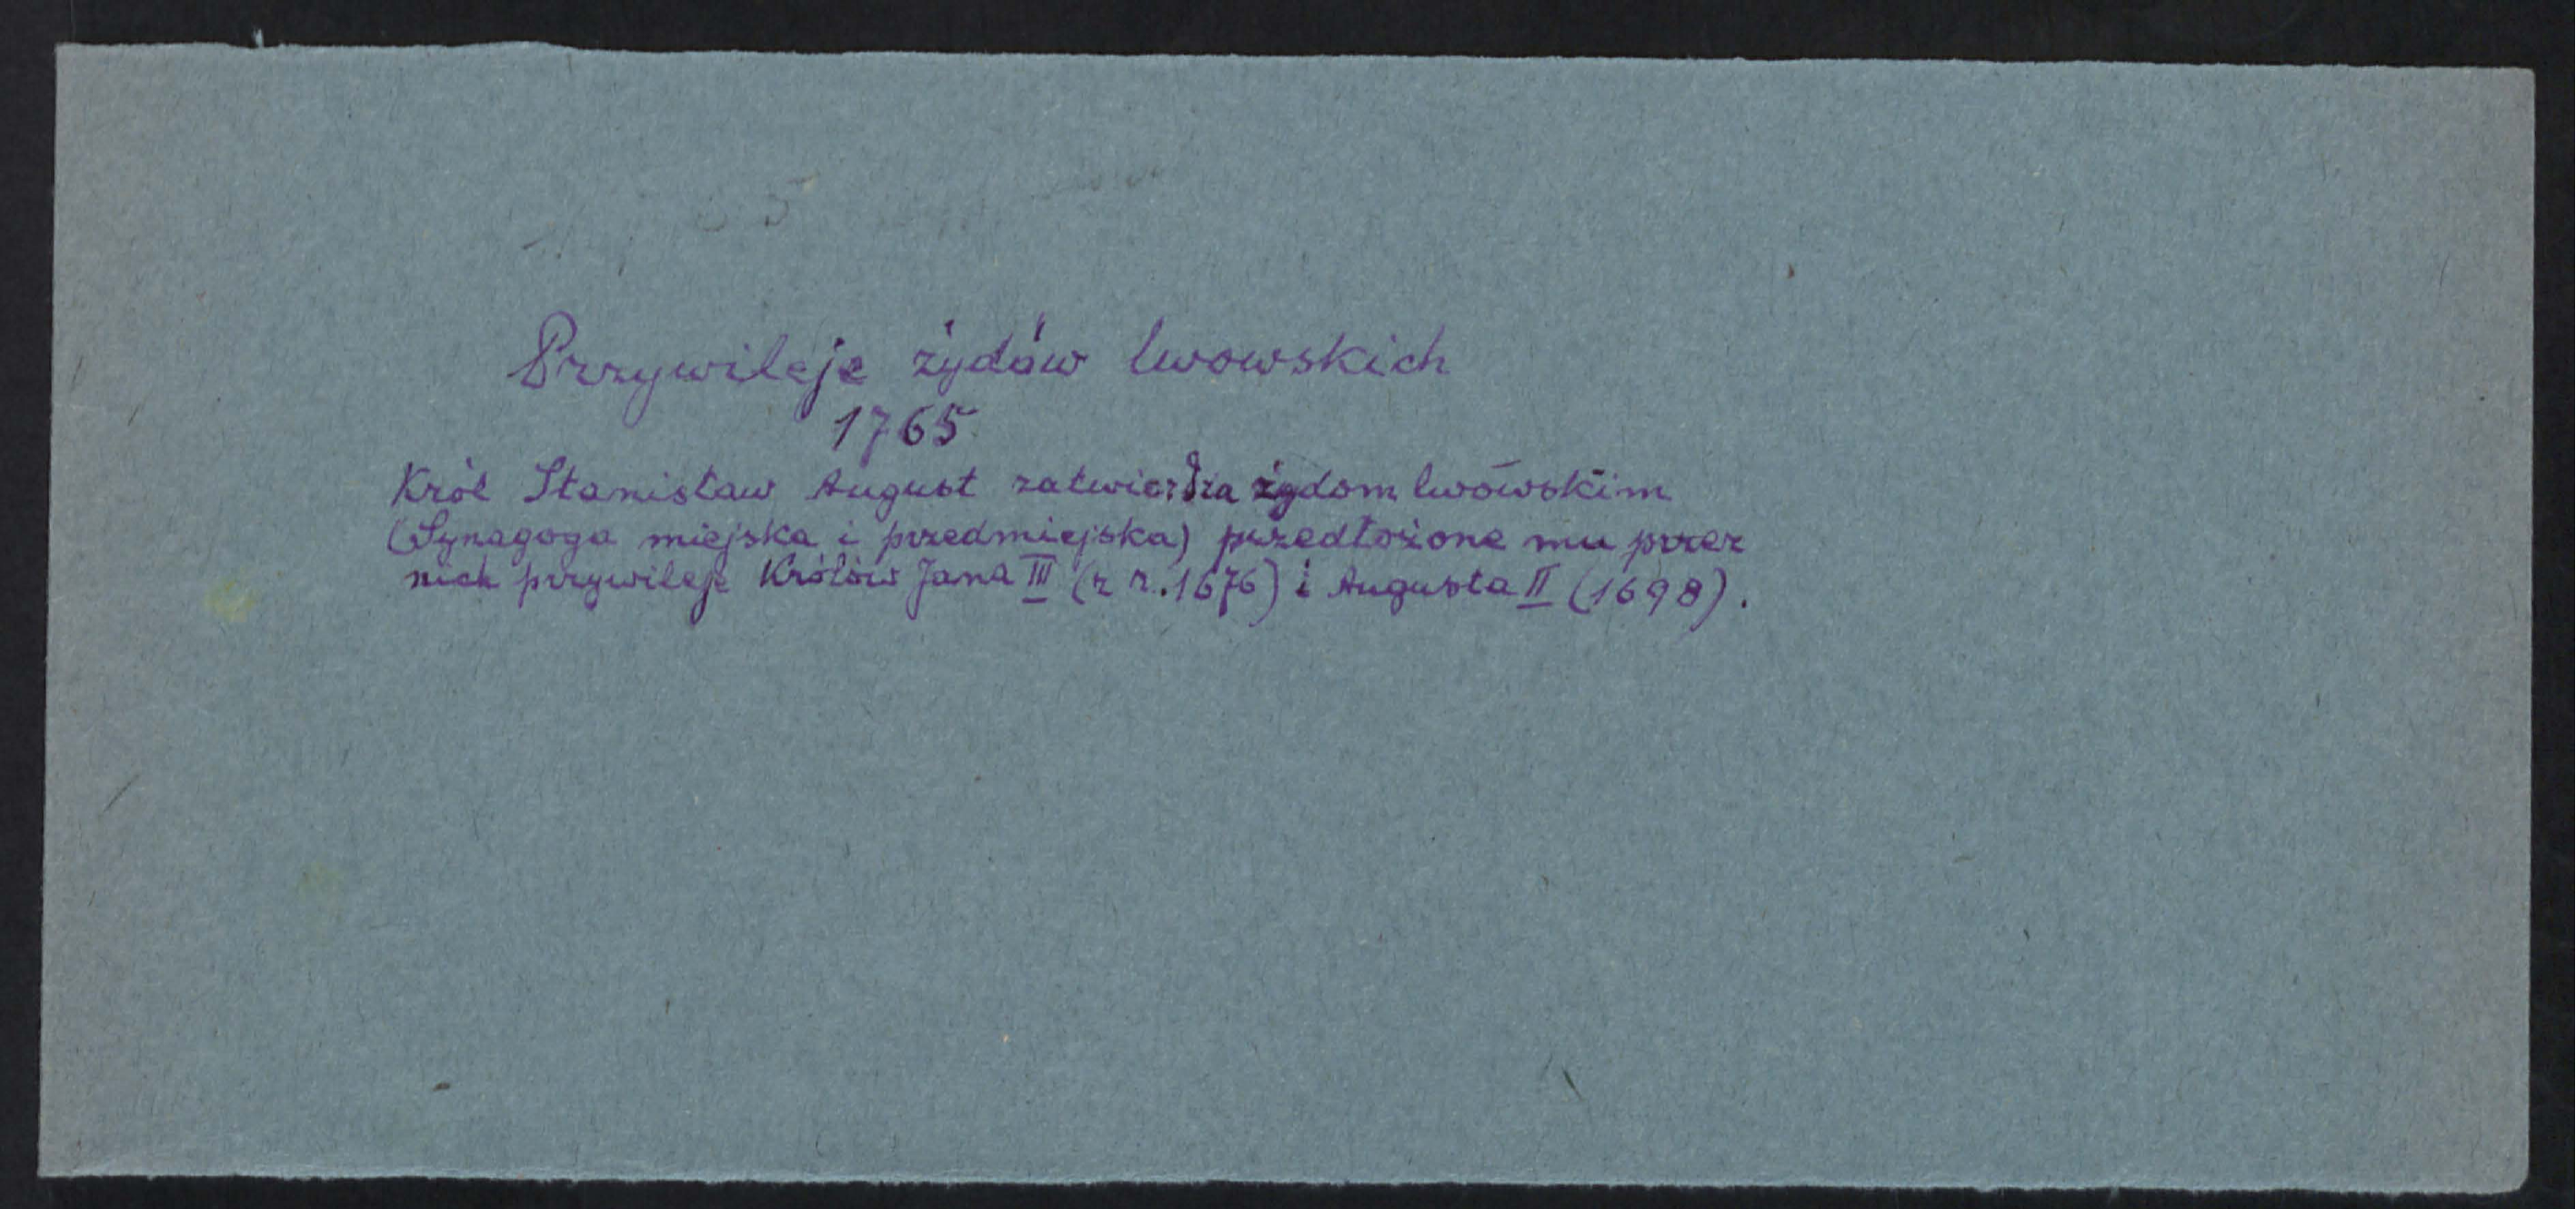 Przywileje żydów lwowskich
1765
Król Stanisław August zatwierdza żydom lwowskim
(Synagoga miejska i przedmiejska) przedłożone mu przez
nich przywileje Królów Jana III (z r. 1676) i Augusta II (1698).